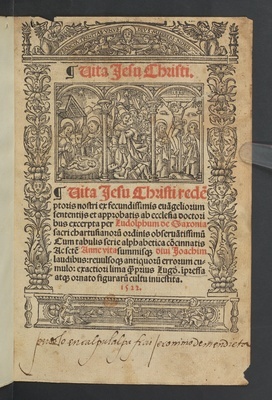 ¶ Vita Jesu Christi.
¶ Vita Jesu Christi redē
ptoris nostri ex fecundissimis euāgeliorum
sententijs et approbatis ab ecclesia doctori
bus excerpta per Ludolphum de Saxonia
sacri chartusianorū ordinis obseruātissimū
Cum tabulis serie alphabetica cōcinnatis
Ac scte Anne vita summisq; diui Joachim
laudibus: reuulsoq; antiquorū errorum cu-
mulo: exactiori lima q̄ prius Lugd. ipressa
atq; ornato figurarū cultu inuestita.
1522.